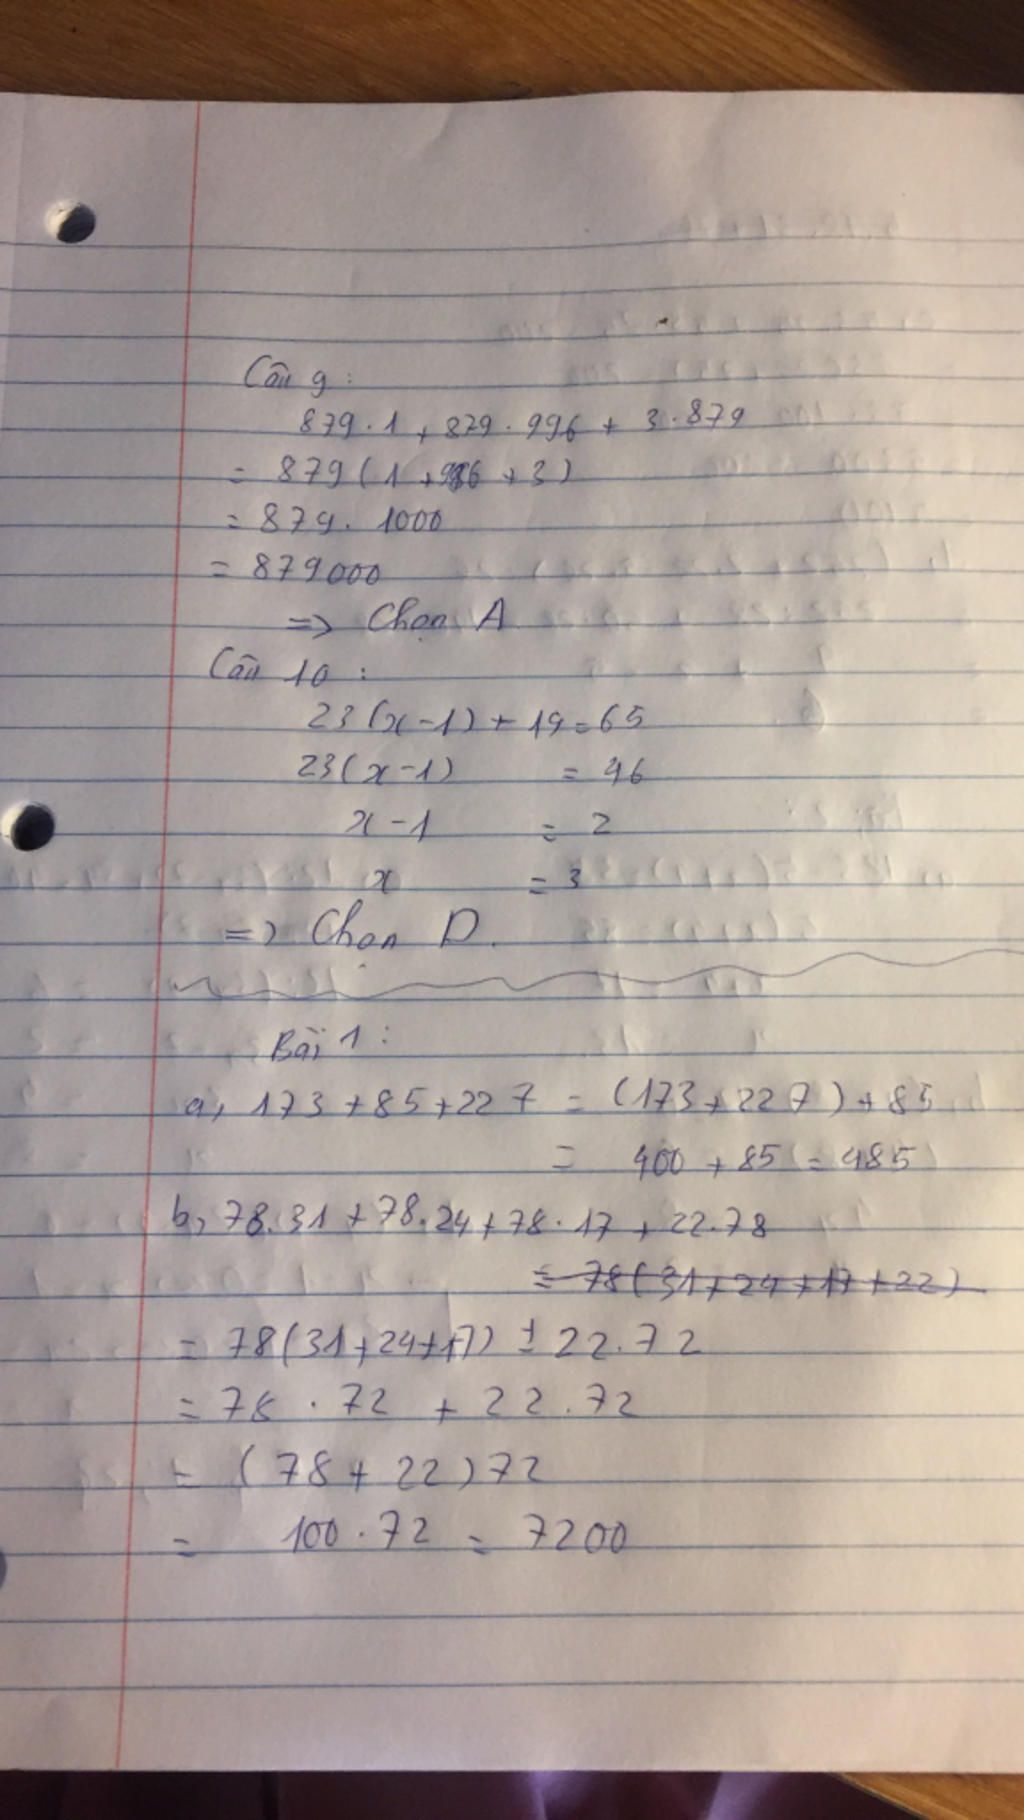 Câu 9:
879.1 + 879.996 + 3.879
= 879(1 + 996 + 3)
= 879.1000
= 879000
=> Chọn A
Câu 10:
23(x-1) + 19 = 65
23(x-1) = 46
x-1 = 2
x = 3
=> Chọn D.
Bài 1:
a, 173 + 85 + 227 = (173 + 227) + 85
= 400 + 85 = 485
b, 78.31 + 78.24 + 78.17 + 22.78
= 78(31 + 24 + 17 + 22)
= 78(31 + 24 + 17) + 22.72
= 78.72 + 22.72
= (78 + 22)72
= 100.72 = 7200